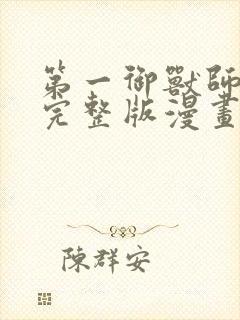 第一御獸師
完整版漫畫
陳群安